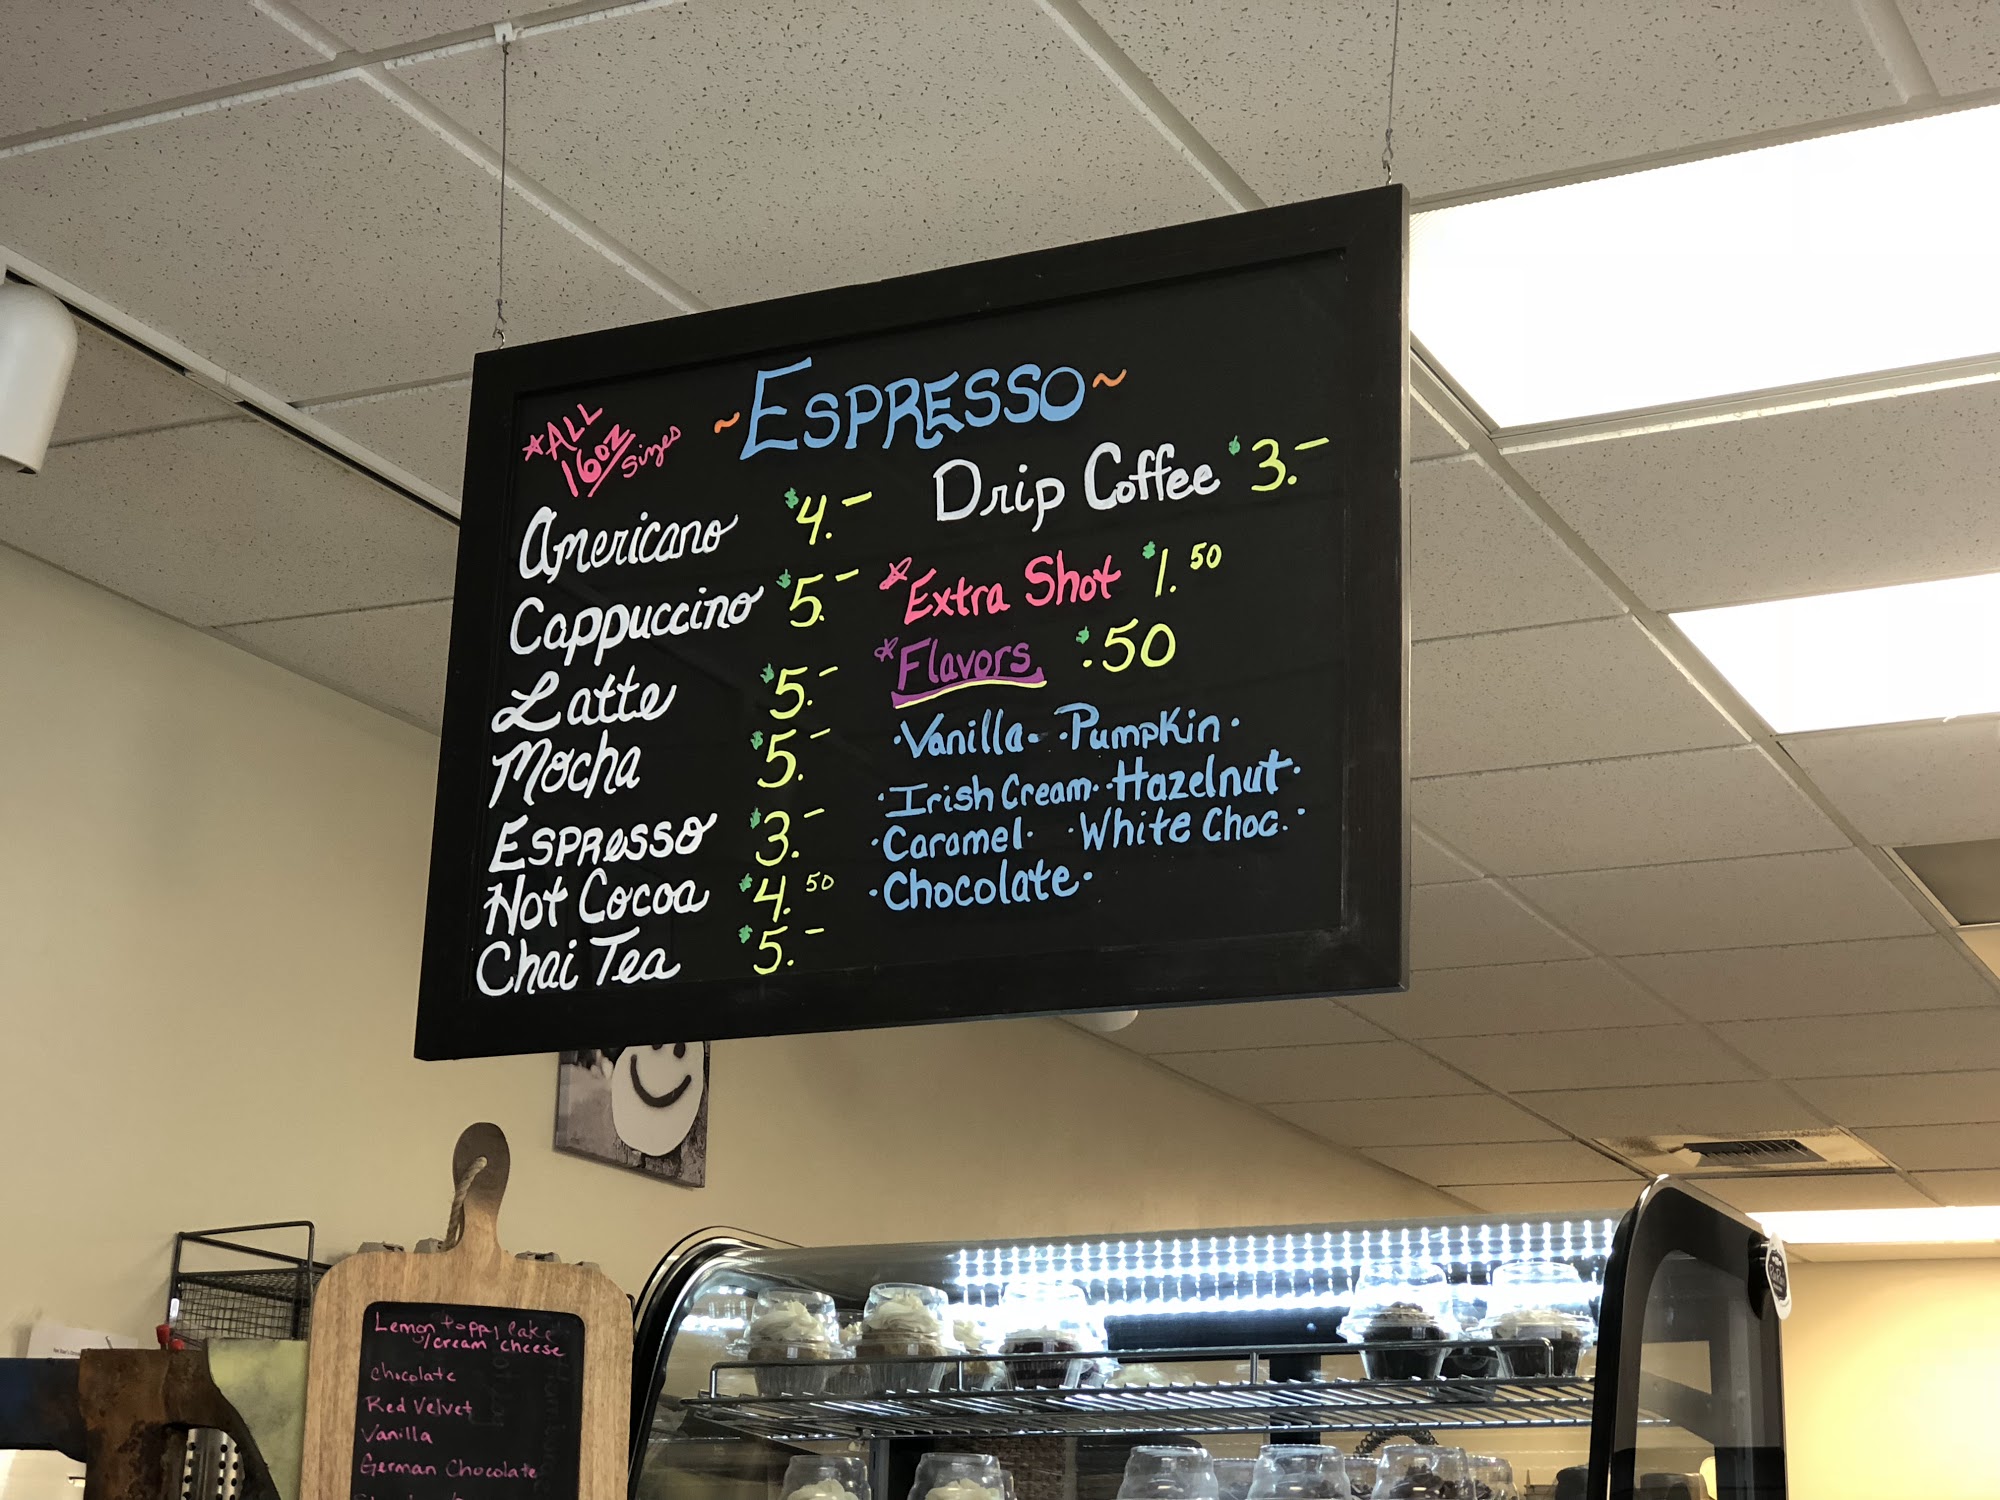 ~ESPRESSO~
*ALL
16oz
Sizes
Americano $4.-
Cappuccino $5.-
Latte $5.-
Mocha $5.-
ESPRESSO $3.-
Hot Cocoa $4.50
Chai Tea $5.-
Drip Coffee $3.-
*Extra Shot $1.50
*Flavors $.50
·Vanilla· ·Pumpkin·
·Irish Cream· ·Hazelnut·
·Caramel· ·White Choc.·
·Chocolate·
Lemon poppy cake
w/cream cheese
Chocolate
Red Velvet
Vanilla
German Chocolate